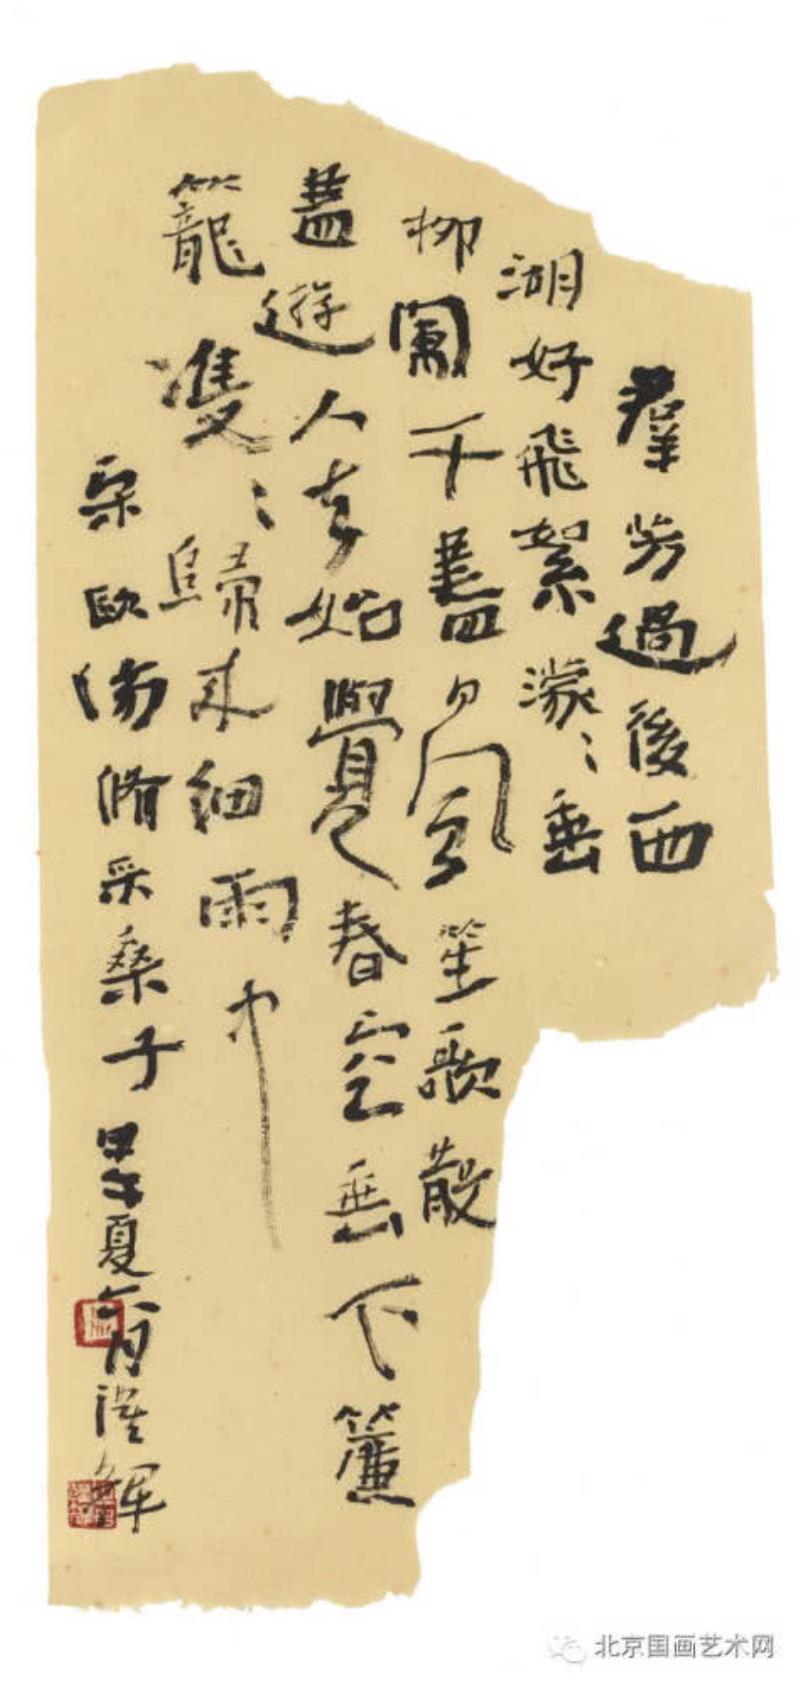 羣芳過後西
湖好飛絮濛〻垂
柳闌干盡日風笙歌散
盡遊人去始覺春空垂下簾
籠雙〻歸來細雨中
宋歐陽脩采桑子甲午夏六月
北京国画艺术网